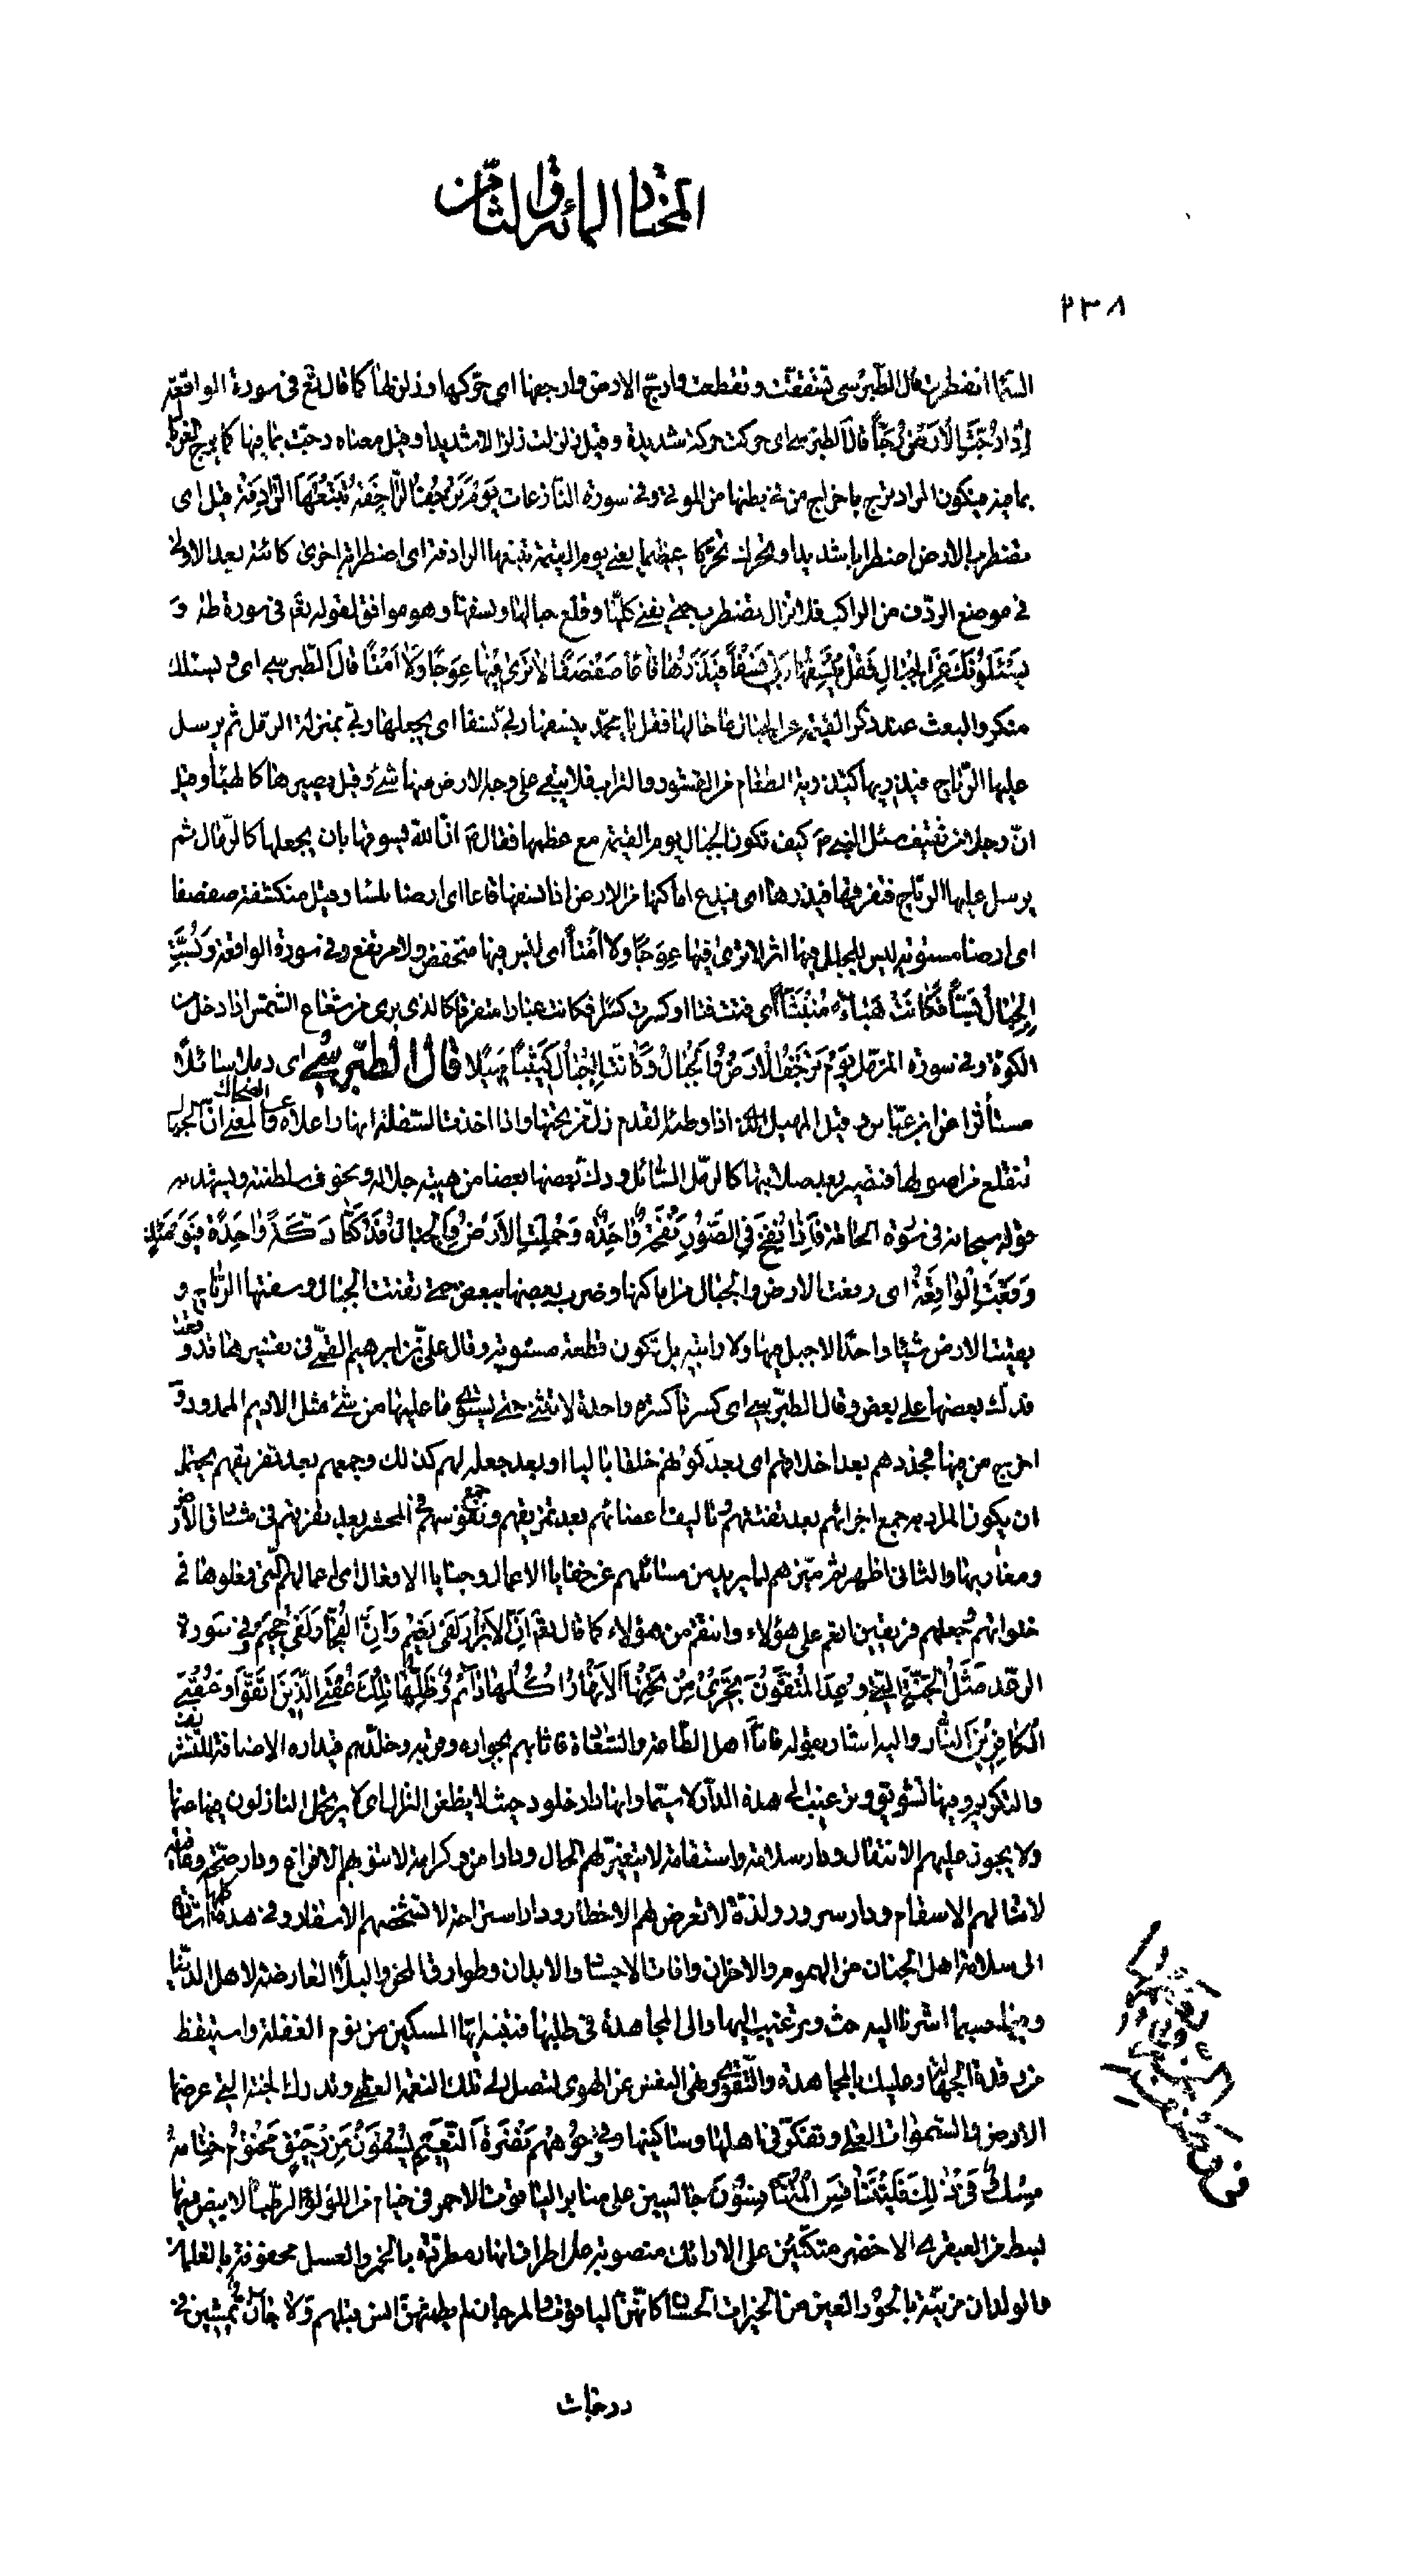 المختار المائة والثامن
٢٣٨
السّماء انفطرت قال الطّبرسى تشققّت وتقطعت وارتجّ الارض وارجفها اى حرّكها وزلزلها كما قال تع فى سورة الواقعة
اذا رجّت الارض رجّاً قال الطبرسى اى حركت حركة شديدة وقيل زلزلت زلزالا شديدا وقيل معناه رجّت بما فيها كما يرجّ الغربال
بما فيه فيكون المراد ترجّ باخراج من فى بطنها من الموتى وفى سورة النّازعات يَوْمَ تَرْجُفُ الرّاجِفَةُ تَتْبَعُهَا الرّادِفَةُ قيل اى
تضطرب الارض اضطرابا شديدا وتحرك تحرّكا عظيما يعنى يوم القيمة تتبعها الرادفة اى اضطرابة اخرى كائنة بعد الاولى
فى موضع الردف من الراكب فلا تزال تضطرب حتى يفنى كلّها وقلع جبالها ونسفها وهو موافق لقوله تع فى سورة طه وَ
يَسْئَلُونَكَ عَنِ الْجِبالِ فَقُلْ يَنْسِفُها رَبّى نَسْفاً فَيَذَرُها قاعًا صَفْصَفًا لا تَرى فيها عِوَجًا وَلا اَمْتًا قال الطبرسى اى ويسئلك
منكروا البعث عند ذكر القيمة عن الجبال ما حالها فقل يا محمّد ينسفها ربّى نسفا اى يجعلها ربّى بمنزلة الرمل ثم يرسل
عليها الرّياح فيذريها كتذرية الطعام من القشور والتراب فلا يبقى على وجه الارض منها شئ وقيل يصيرها كالهباء وقيل
انّ رجلا من ثقيف سئل النبى ص كيف تكون الجبال يوم القيمة مع عظمها فقال ص انّ الله يسوقها بان يجعلها كالرّمال ثم
يرسل عليها الرّياح فتفرقها فيذرها اى فيدع اماكنها من الارض اذا نسفها قاعا اى ارضا ملساء وقيل منكشفة صفصفا
اى ارضا مستوية ليس للجبل فيها اثر لا ترى فيها عوجًا ولا امتًا اى ليس فيها منخفض ولا مرتفع وفى سورة الواقعة وَبُسَّتِ
الْجِبالُ بَسًّا فَكانَتْ هَباءً مُنْبَثًّا اى فتتت فتا او كسرت كسرا فكانت غبارا متفرقا كالذى يرى من شعاع الشمس اذا دخل من
الكوّة وفى سورة المزمّل يَوْمَ تَرْجُفُ الْاَرْضُ وَالْجِبالُ وَكانَتِ الْجِبالُ كَثيبًا مَهيلًا قال الطبرسى اى رملا سائلًا
متناثرا عن ابن عبّاس وقيل المهيل الّذى اذا وطئه القدم زلّ من تحتها واذا اخذت اسفله انهار اعلاه عن الضحاك والمعنى انّ الجبال
تنقلع من اصولها فتصير بعد صلابتها كالرّمل السّائل ودكّ بعضها بعضا من هيبة جلاله ومخوف سطوته ويشهد به
قوله سبحانه فى سورة الحاقة فَاِذا نُفِخَ فِى الصّورِ نَفْخَةٌ واحِدَةٌ وَحُمِلَتِ الْاَرْضُ وَالْجِبالُ فَدُكَّتا دَكَّةً واحِدَةً فَيَوْمَئِذٍ
وَقَعَتِ الْواقِعَةُ اى رفعت الارض والجبال من اماكنها وضرب بعضها ببعض حتى تفتتت الجبال وسفتها الرّياح و
بقيت الارض شيئا واحدًا لا جبل فيها ولا رابية بل تكون قطعة مستوية وقال علىّ بن ابرهيم القمّى فى تفسيرها قد وقعت
فدكّ بعضها على بعض وقال الطبرسى اى كسرتا كسرة واحدة لا تثنى حتى يستوى ما عليها من شئ مثل الاديم الممدود وَ
اخرج من فيها فجددهم بعد اخلاقهم اى بعد كونهم خلقا باليا او بعد جعله لهم كذلك وجمعهم بعد تفريقهم يحتمل
ان يكون المراد به جمع اجزائهم بعد تفتتهم وتاليف اعضائهم بعد تمزيقهم وجمع نفوسهم فى المحشر بعد تفرقهم فى مشارق الارض
ومغاربها والثانى اظهر ثم ميّزهم لما يريد من مسائلهم عن خفايا الاعمال وخبايا الافعال اى اعمالهم التى فعلوها فى
خلواتهم وجعلهم فريقين انعم على هؤلاء وانتقم من هؤلاء كما قال تع اِنَّ الْاَبْرارَ لَفى نَعيمٍ وَاِنَّ الْفُجّارَ لَفى جَحيمٍ وفى سورة
الرّعد مَثَلُ الْجَنَّةِ الَّتى وُعِدَ الْمُتَّقُونَ تَجْرى مِنْ تَحْتِهَا الْاَنْهارُ اُكُلُها دائِمٌ وَظِلُّها تِلْكَ عُقْبَى الَّذينَ اتَّقَوْا وَعُقْبَى
الْكافِرينَ النّارُ واليه اشار بقوله فامّا اهل الطّاعة فاثابهم بجواره وخلّدهم فى داره الاضافة للتشريف
والتكريم وفيها تشويق وترغيب الى هذه الدّار لا سيّما وانها دار خلود حيث لا يظعن النزال اى لا يرتحل النازلون فيها عنها
ولا يجوز عليهم الانتقال ودار سلامة واستقامة لا يتغيّر لهم الحال ودار امن وكرامة لا تنوبهم الافزاع ودار صحّة
لا تنالهم الاسقام ودار سرور ولذة لا تعرض لهم الاخطار ودار استراحة لا تشخصهم الاسفار وفى هذه كلها اشارة
الى سلامة اهل الجنان من الهموم والاحزان وافات الاجساد والابدان وطوارق المحن والبلاء العارضة لاهل الدّنيا
وفيها حسبما اشرنا اليه حث وترغيب اليها والى المجاهدة فى طلبها فتنبه ايّها المسكين من نوم الغفلة واستيقظ
من رقدة الجهالة وعليك بالمجاهدة والتّقوى ونهى النفس عن الهوى لتصل الى تلك النعمة العظمى وتدرك الجنة التى عرضها
الارض والسّموات العلى وتفكّر فى اهلها وساكنيها وفى وُجُوهِهِمْ نَضْرَةَ النَّعيمِ يُسْقَوْنَ مِنْ رَحيقٍ مَخْتُومٍ خِتامُهُ
مِسْكٌ وَفى ذلِكَ فَلْيَتَنافَسِ الْمُتَنافِسُونَ جالسين على منابر الياقوت الاحمر فى خيام من اللؤلؤ الرطب الابيض فيها
بسط من العبقرى الاخضر متكئين على الارائك منصوبة على اطراف انهار مطردة بالخمر والعسل محفوفة بالغلمان
والولدان مزينة بالحور العين من الخيرات الحسان كانّهنّ الياقوت والمرجان لم يطمثهنّ انس قبلهم ولا جانّ يمشين فى
درجات